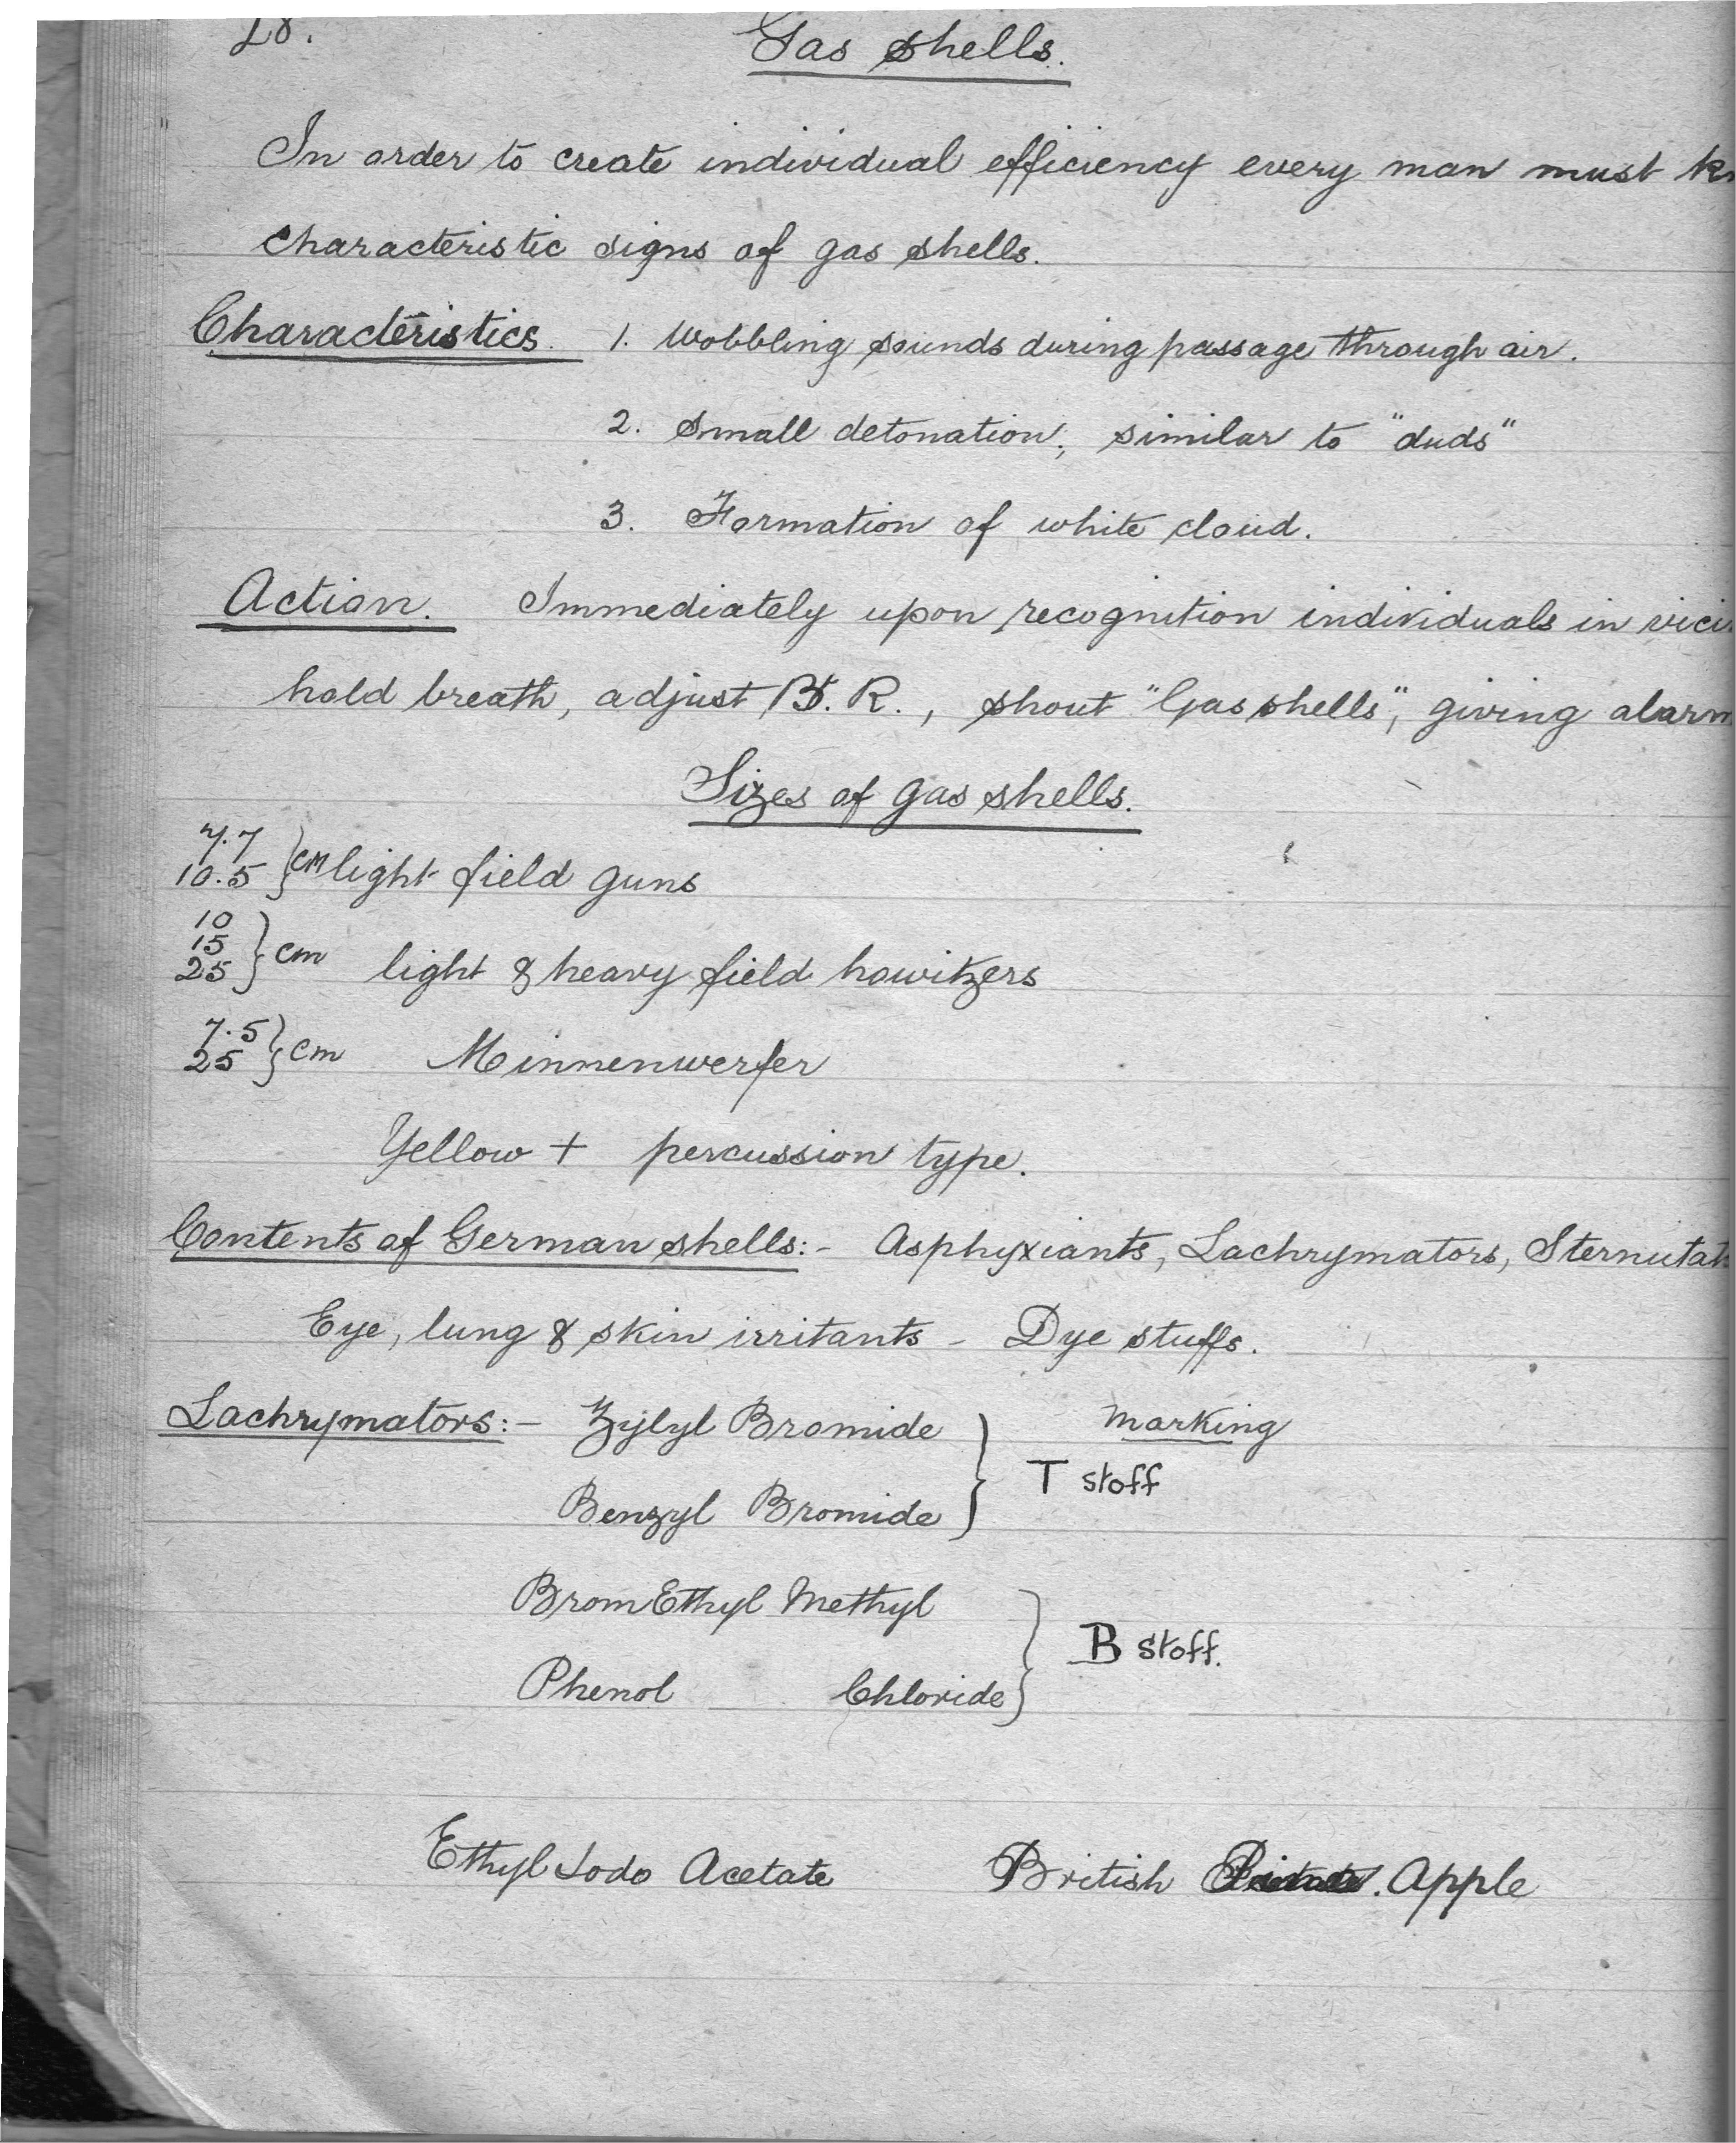 28.
Gas shells.
In order to create individual efficiency every man must
characteristic signs of gas shells.
Characteristics. 1. Wobbling sounds during passage through air.
2. Small detonation; similar to "duds"
3. Formation of white cloud.
Action. Immediately upon recognition individuals in
hold breath, adjust B. R., shout "Gas shells", giving alarm
Sizes of gas shells.
7.7
10.5 } cm light field guns
10
15
25 } cm light & heavy field howitzers
7.5
25 } cm Minnenwerfer
Yellow + percussion type.
Contents of German shells:- Asphyxiants, Lachrymators,
Eye, lung & skin irritants - Dye stuffs.
Lachrymators:- Zylyl Bromide marking
} T stoff
Benzyl Bromide
Brom Ethyl Methyl
} B stoff.
Phenol Chloride
Ethyl Iodo Acetate British Apple